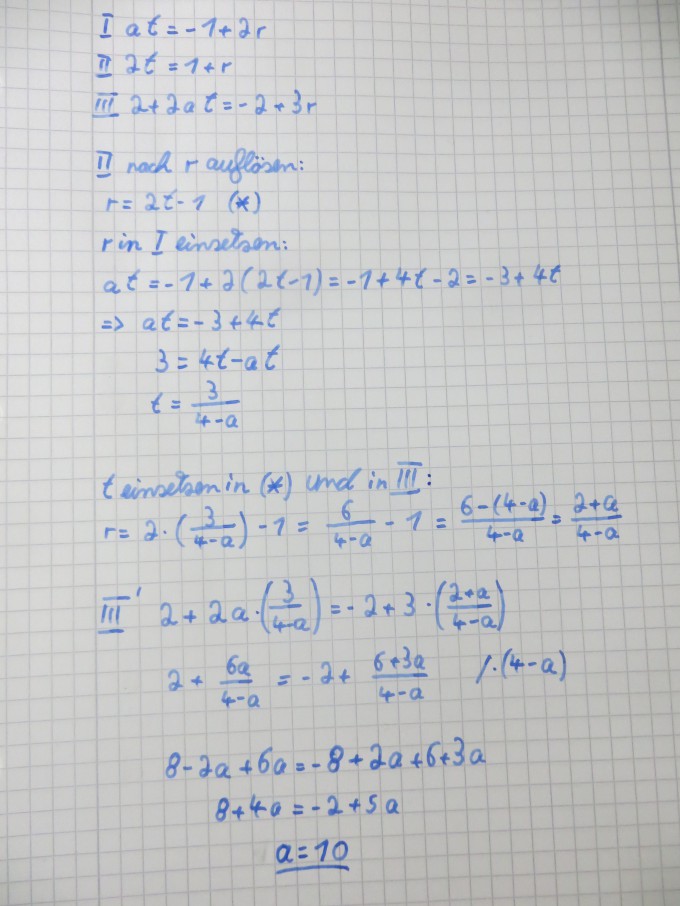 I at = -1+2r
II 2t = 1+r
III 2+2at = -2+3r
II nach r auflösen:
r = 2t-1 (*)
r in I einsetsen:
at = -1+2(2t-1) = -1+4t-2 = -3+4t
=> at = -3+4t
3 = 4t-at
t = 3/(4-a)
t einsetsen in (*) und in III:
r = 2·(3/(4-a)) -1 = 6/(4-a) - 1 = (6-(4-a))/(4-a) = (2+a)/(4-a)
III' 2+2a·(3/(4-a)) = -2+3·((2+a)/(4-a))
2 + 6a/(4-a) = -2 + (6+3a)/(4-a) /·(4-a)
8-2a+6a = -8+2a+6+3a
8+4a = -2+5a
a = 10